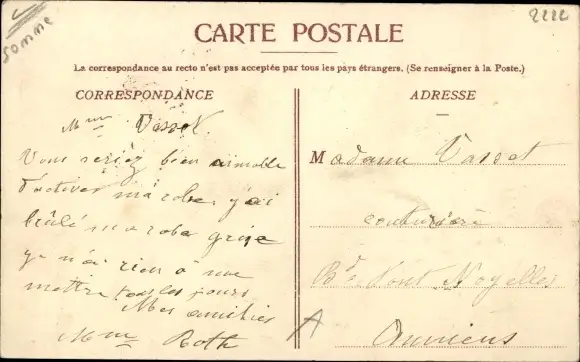 Somme
2222
CARTE POSTALE
La correspondance au recto n'est pas acceptée par tous les pays étrangers. (Se renseigner à la Poste.)
CORRESPONDANCE
Mme Vasset
Vous seriez bien aimable
d'activer ma robe j'ai
brûlé ma robe grise
je n'ai rien à me
mettre tous les jours
Mes amitiés
Mme Roth
ADRESSE
Madame Vasset
couturière
Bd Pont Noyelles
Amiens